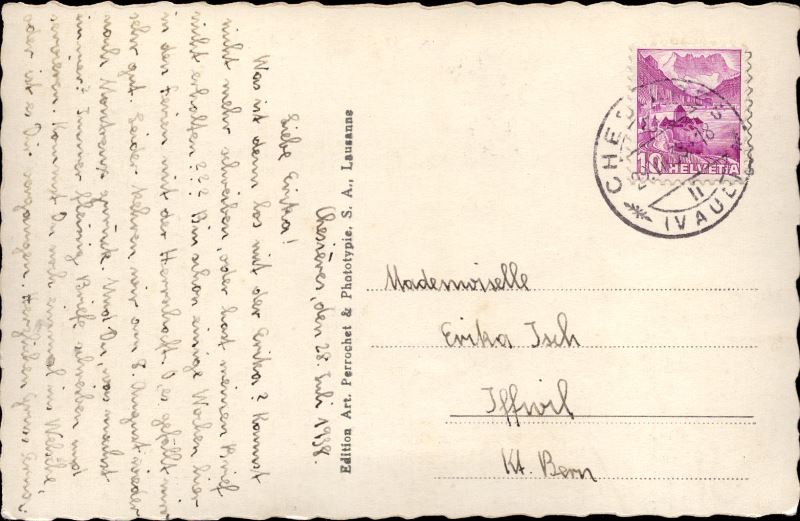 Chesières, den 28. Juli 1938.
Liebe Erika!
Was ist denn los mit der Erika? Kannst
nicht mehr schreiben, oder hast meinen Brief
nicht erhalten??? Bin schon einige Wochen hier
in den Ferien mit der Herrschaft. O, es gefällt mir
sehr gut. Leider kehren wir am 8. August wieder
nach Montreux zurück. Und Du, was machst
immer? Immer fleissig Briefe schreiben und
servieren. Kommst Du noch einmal ins Welsche,
oder ist es Dir vergangen. Herzlichen Gruss
Edition Art. Perrochet & Phototypie, S. A., Lausanne
CHE
(VAUD)
II
10 HELVETIA
Mademoiselle
Erika Isch
Iffwil
Kt. Bern